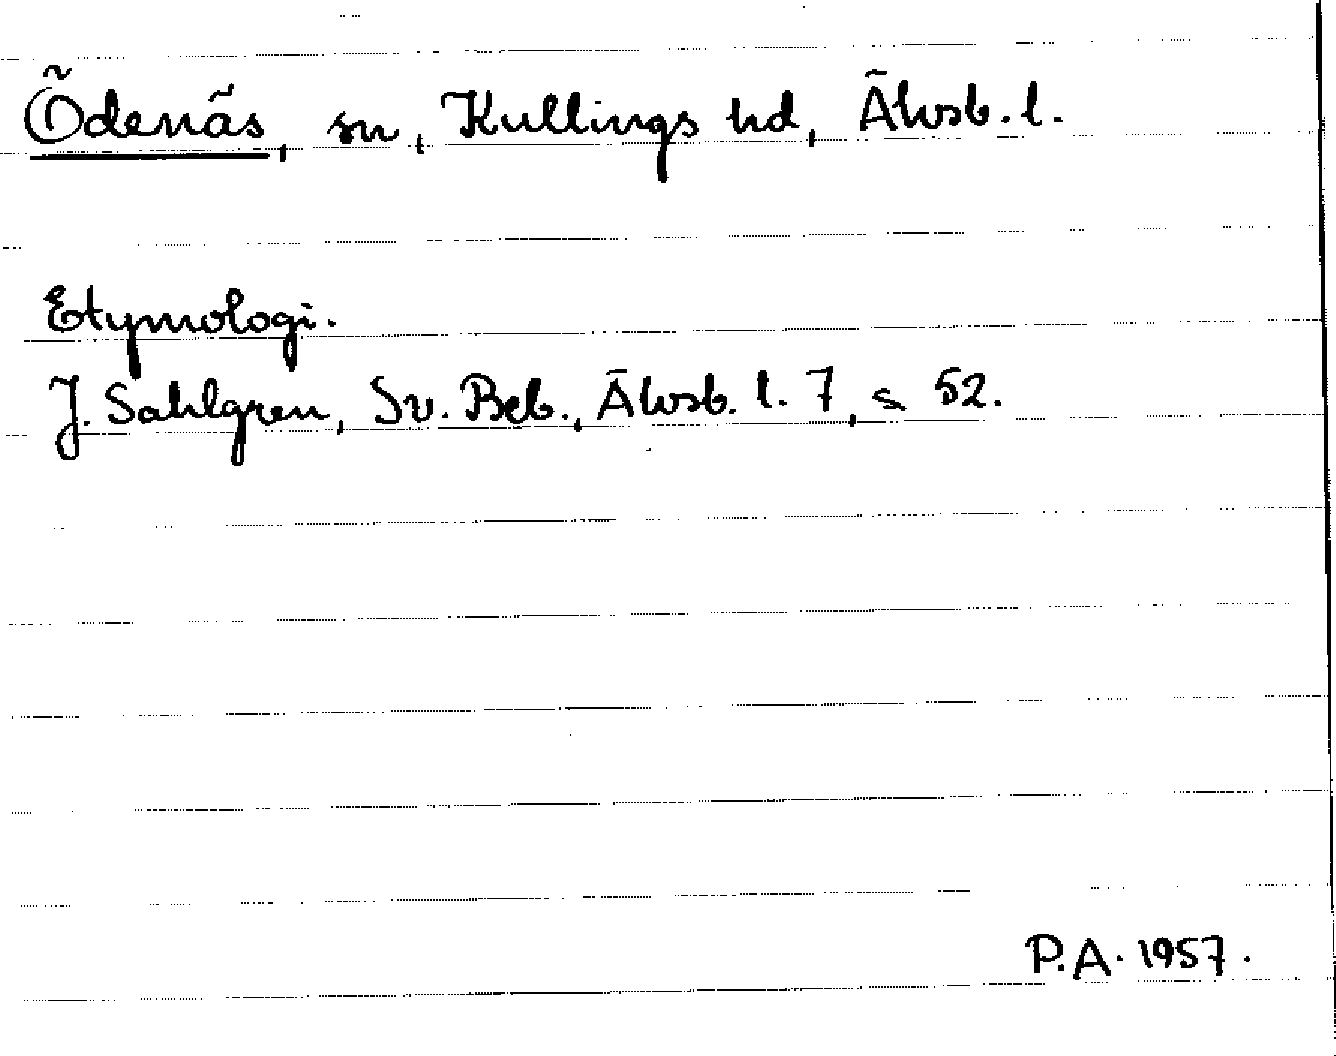 Ödenäs, sn, Kullings hd, Älvsb. l.
Etymologi.
J. Sahlgren, Sv. Beb., Älvsb. l. 7, s 52.
P.A. 1957.